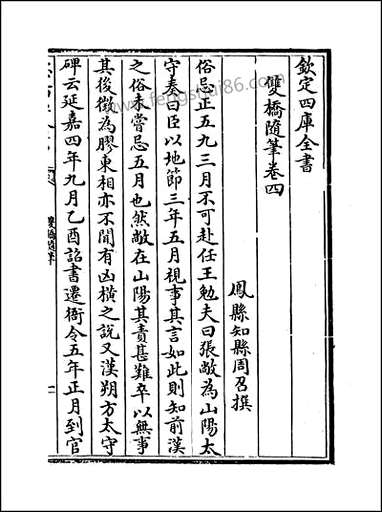 欽定四庫全書
雙橋隨筆卷四
鳳縣知縣周召撰
俗忌正五九三月不可赴任王勉夫曰張敞為山陽太
守奏曰臣以地節三年五月視事其言如此則知前漢
之俗未嘗忌五月也然敞在山陽其責甚難卒以無事
其後徵為膠東相亦不聞有凶橫之說又漢朔方太守
碑云延嘉四年九月乙酉詔書遷衙令五年正月到官
雙橋隨筆
一
www.fengshui86.com